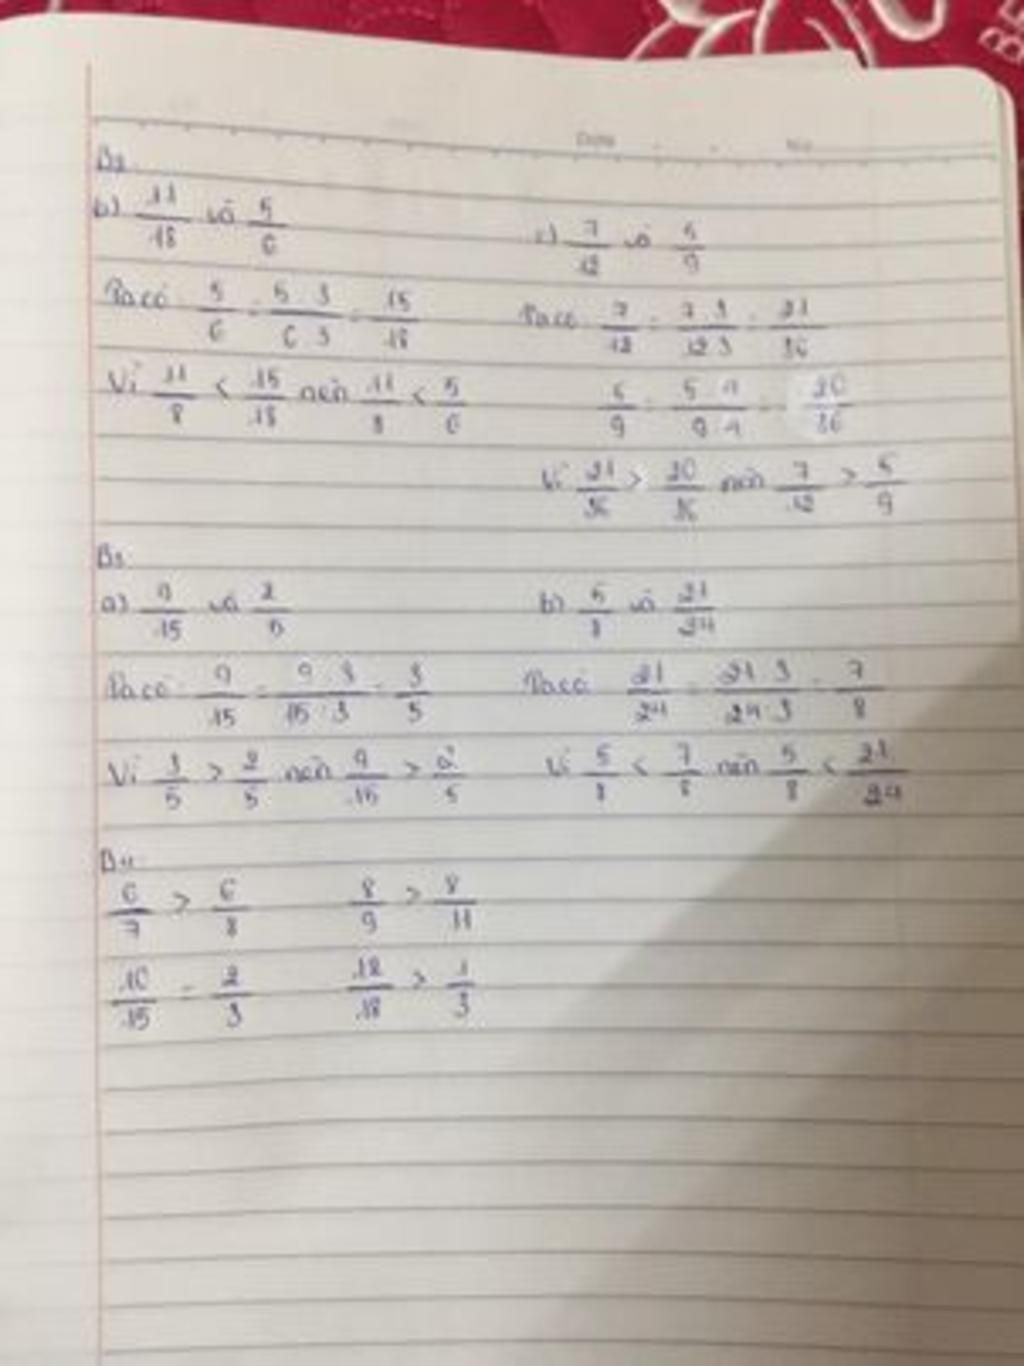 Date No
B2
b) 11/18 và 5/6
Ta có: 5/6 = 5·3/6·3 = 15/18
Vì 11/8 < 15/18 nên 11/8 < 5/6
c) 7/12 và 5/9
Ta có: 7/12 = 7·3/12·3 = 21/36
5/9 = 5·4/9·4 = 20/36
Vì 21/36 > 20/36 nên 7/12 > 5/9
B3
a) 9/15 và 2/5
Ta có: 9/15 = 9:3/15:3 = 3/5
Vì 3/5 > 2/5 nên 9/15 > 2/5
b) 5/8 và 21/24
Ta có: 21/24 = 21:3/24:3 = 7/8
Vì 5/8 < 7/8 nên 5/8 < 21/24
B4
6/7 > 6/8 8/9 > 8/11
10/15 = 2/3 12/18 > 1/3